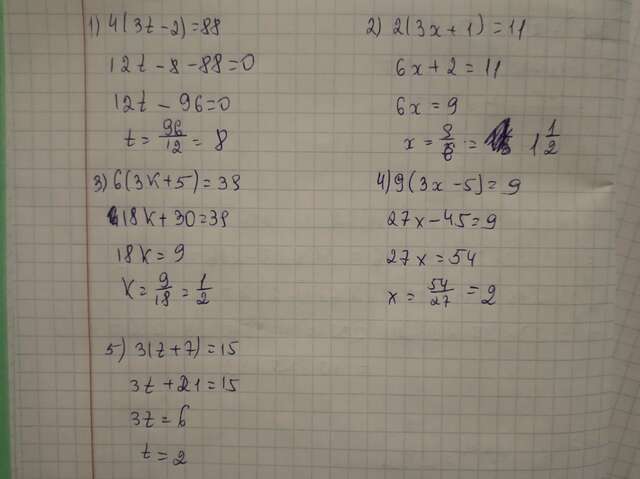 1) 4(3t-2)=88
12t-8-88=0
12t-96=0
t=96/12=8
2) 2(3x+1)=11
6x+2=11
6x=9
x=9/6= 1 1/2
3) 6(3k+5)=39
18k+30=39
18k=9
k=9/18=1/2
4) 9(3x-5)=9
27x-45=9
27x=54
x=54/27=2
5) 3(t+7)=15
3t+21=15
3t=6
t=2